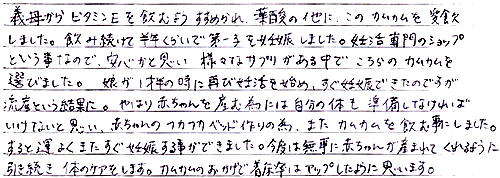 義母からビタミンEを飲むようすすめられ、葉酸の他に、このカムカムを愛飲
しました。飲み続けて半年くらいで第一子を妊娠しました。妊活専門のショップ
という事なので、安心かと思い 様々なサプリがある中でこちらのカムカムを
選びました。 娘が1才の時に再び妊活を始め、すぐ妊娠できたのですが
流産という結果に。やはり赤ちゃんを産む為には自分の体を準備しなければ
いけないと思い、赤ちゃんのフカフカベッド作りの為、またカムカムを飲む事にしました。
すると運よくまたすぐ妊娠する事ができました。今度は無事に赤ちゃんが産まれてくれるように
引き続き体のケアをします。カムカムのおかげで着床率はアップしたように思います。